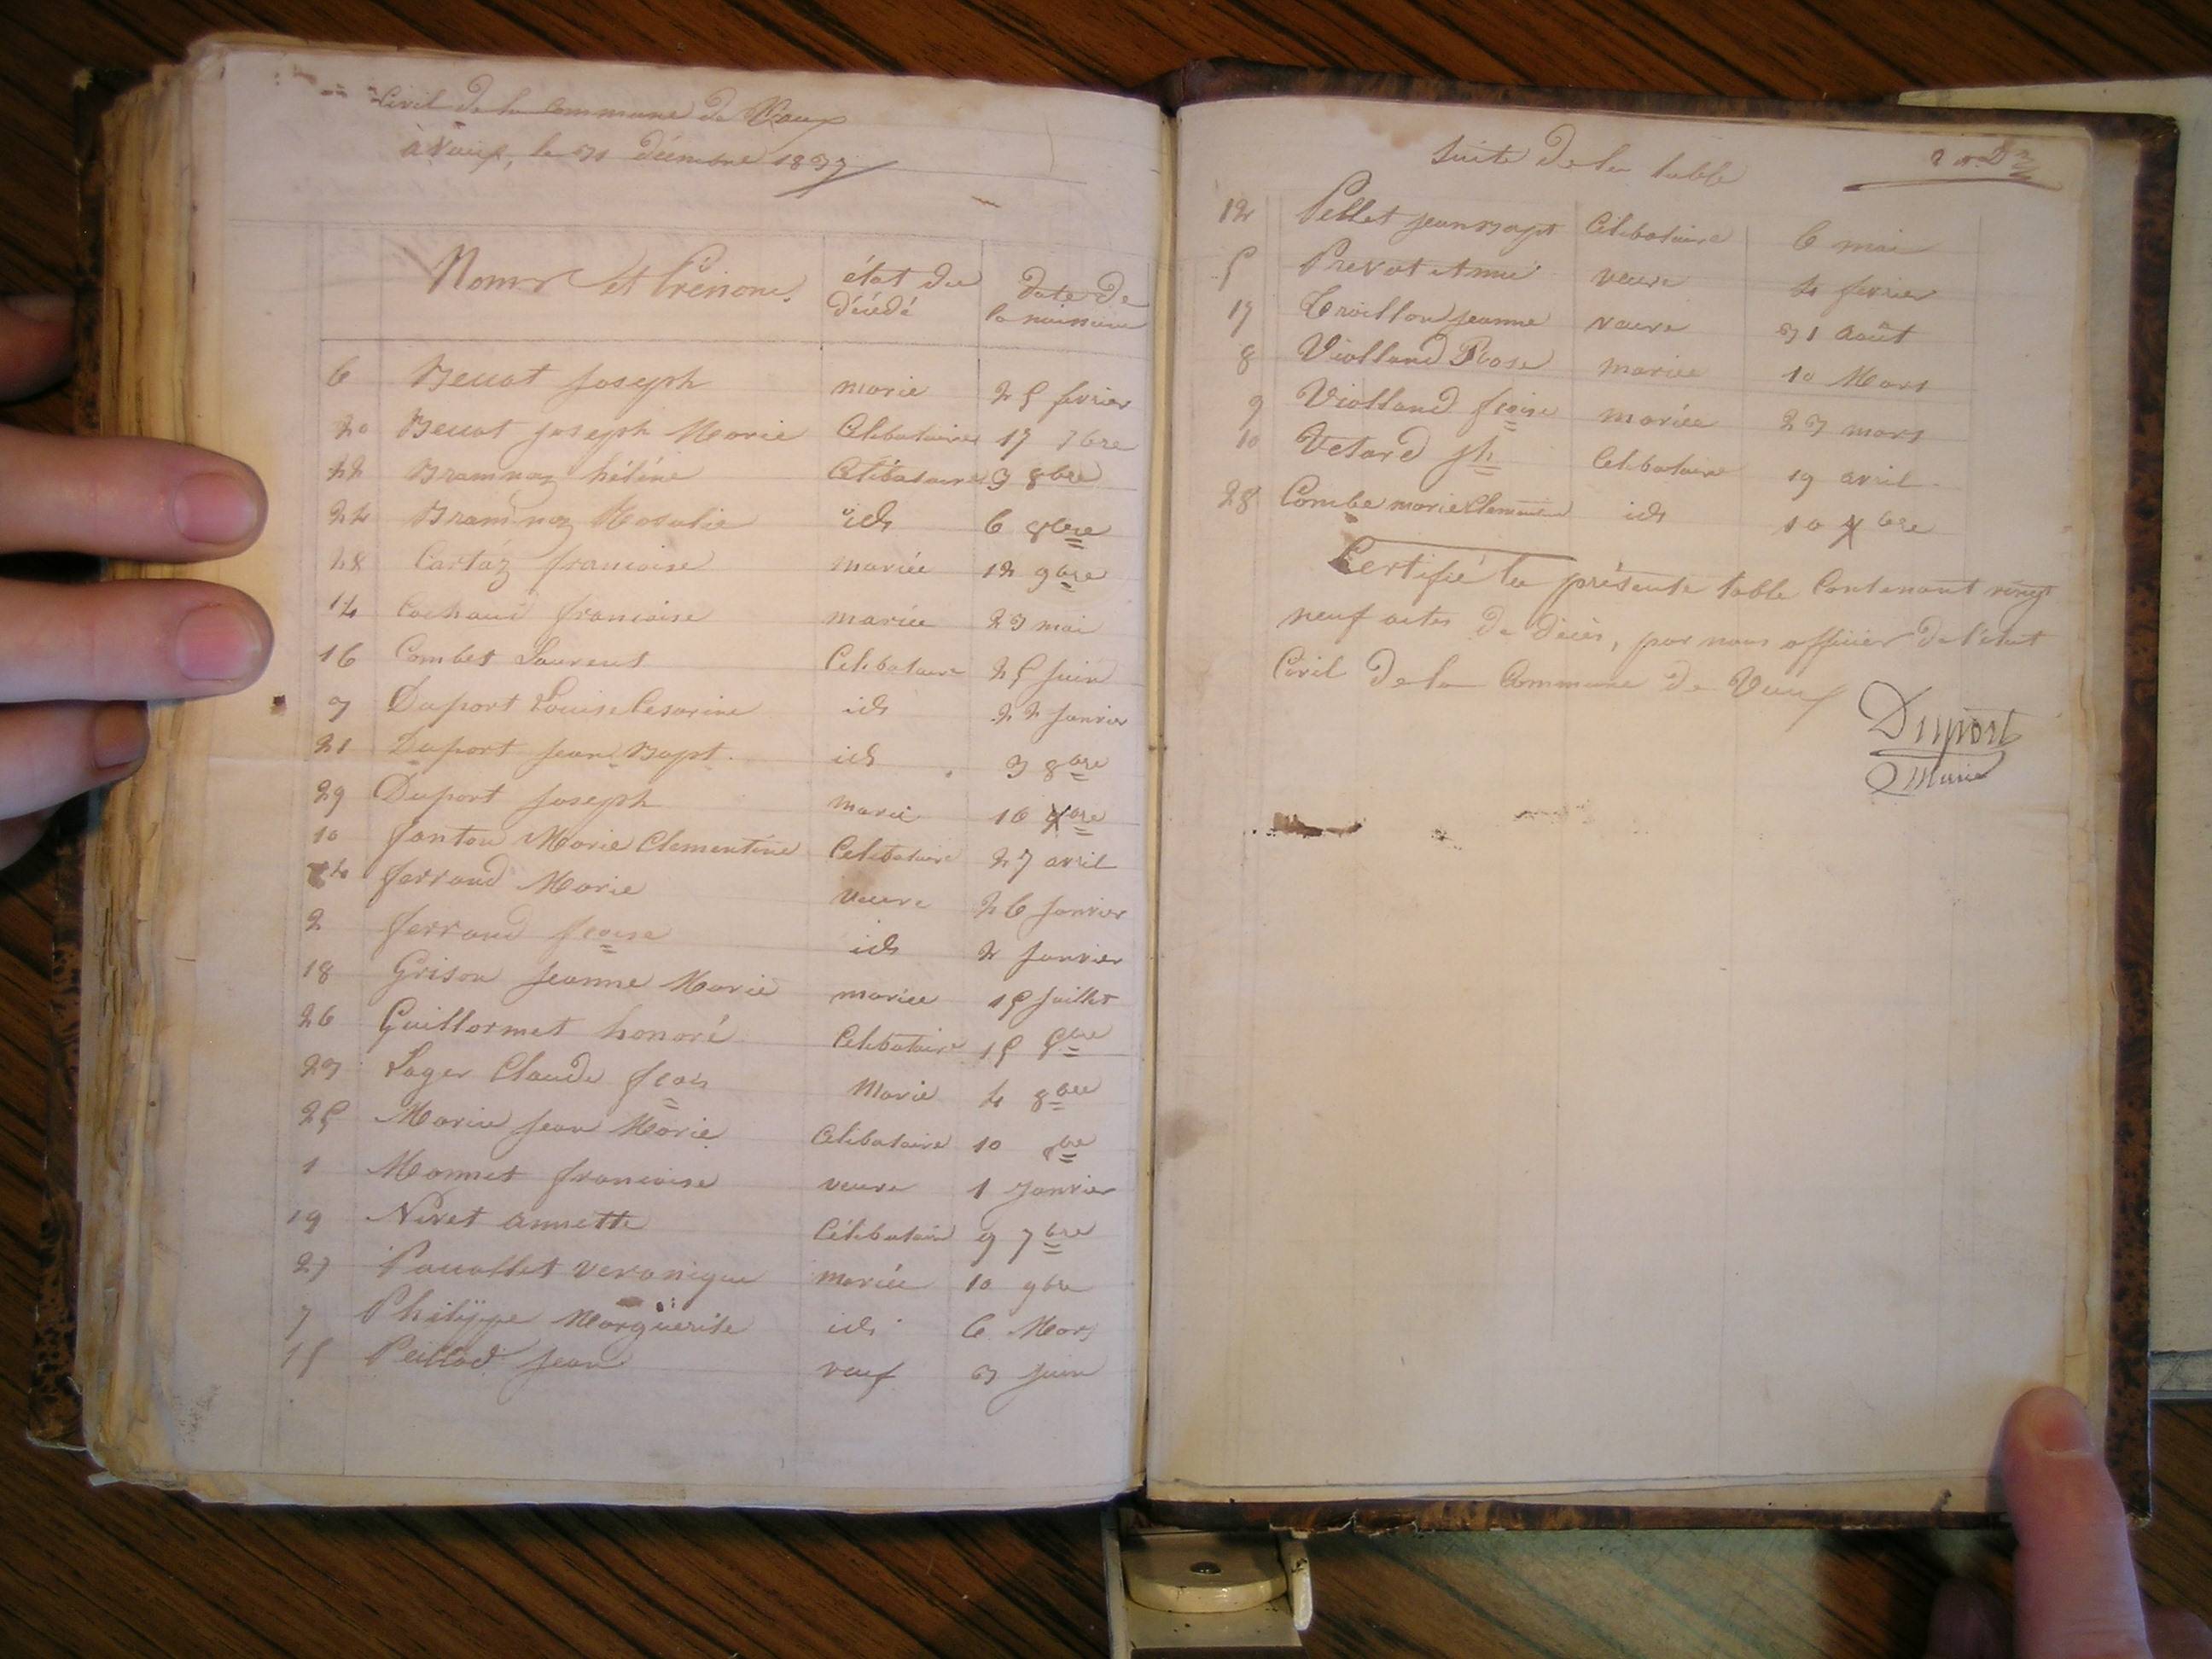 Civil de la Commune de Vaux
à Vaux, le 31 décembre 1837
Noms et Prénoms état du décédé date de la naissance
6 Beuat joseph marié 25 fevrier
20 Beuat joseph Marie Célibataire 17 7bre
22 Bramnaz héléne Célibataire 3 8bre
24 Bramnaz Rosalie id 6 8bre
28 Cartáz francoise mariée 12 9bre
14 Cochaud francoise mariée 23 mai
16 Combet Laurent Célibataire 25 juin
3 Duport Louise Cesarine id 22 janvier
21 Duport jean Bapt. id 3 8bre
29 Duport joseph marié 16 Xbre
10 fanton Marie Clementine Célibataire 27 avril
4 ferrand Marie veuve 26 janvier
2 ferrand fcoise id 2 janvier
18 Grison jeanne Marie mariée 15 juillet
26 Guillormet honoré Célibataire 15 8bre
23 Lager Claude fcois Marié 4 8bre
25 Marin jean Marie Célibataire 10 8bre
1 Monnet francoise veuve 1 janvier
19 Niret Annette Célibataire 9 7bre
27 Pauallet veronique mariée 10 9bre
7 Philippe Marguerite id 6 Mars
15 Peillod jean veuf 3 juin
Suite de la table
12 Pellet jean Bapt Célibataire 6 mai
5 Prevot Aimé veuve 4 fevrier
17 Croillon jeanne veuve 31 Août
8 Violland Rose mariée 10 Mars
9 Violland fcoise mariée 23 mars
10 Vetard jh Célibataire 19 avril
28 Combe marie Clementine id 10 Xbre
Certifié la présente table Contenant vingt
neuf actes de Décès, par nous officier de l'état
Civil de la Commune de Vaux
Duport
Maire